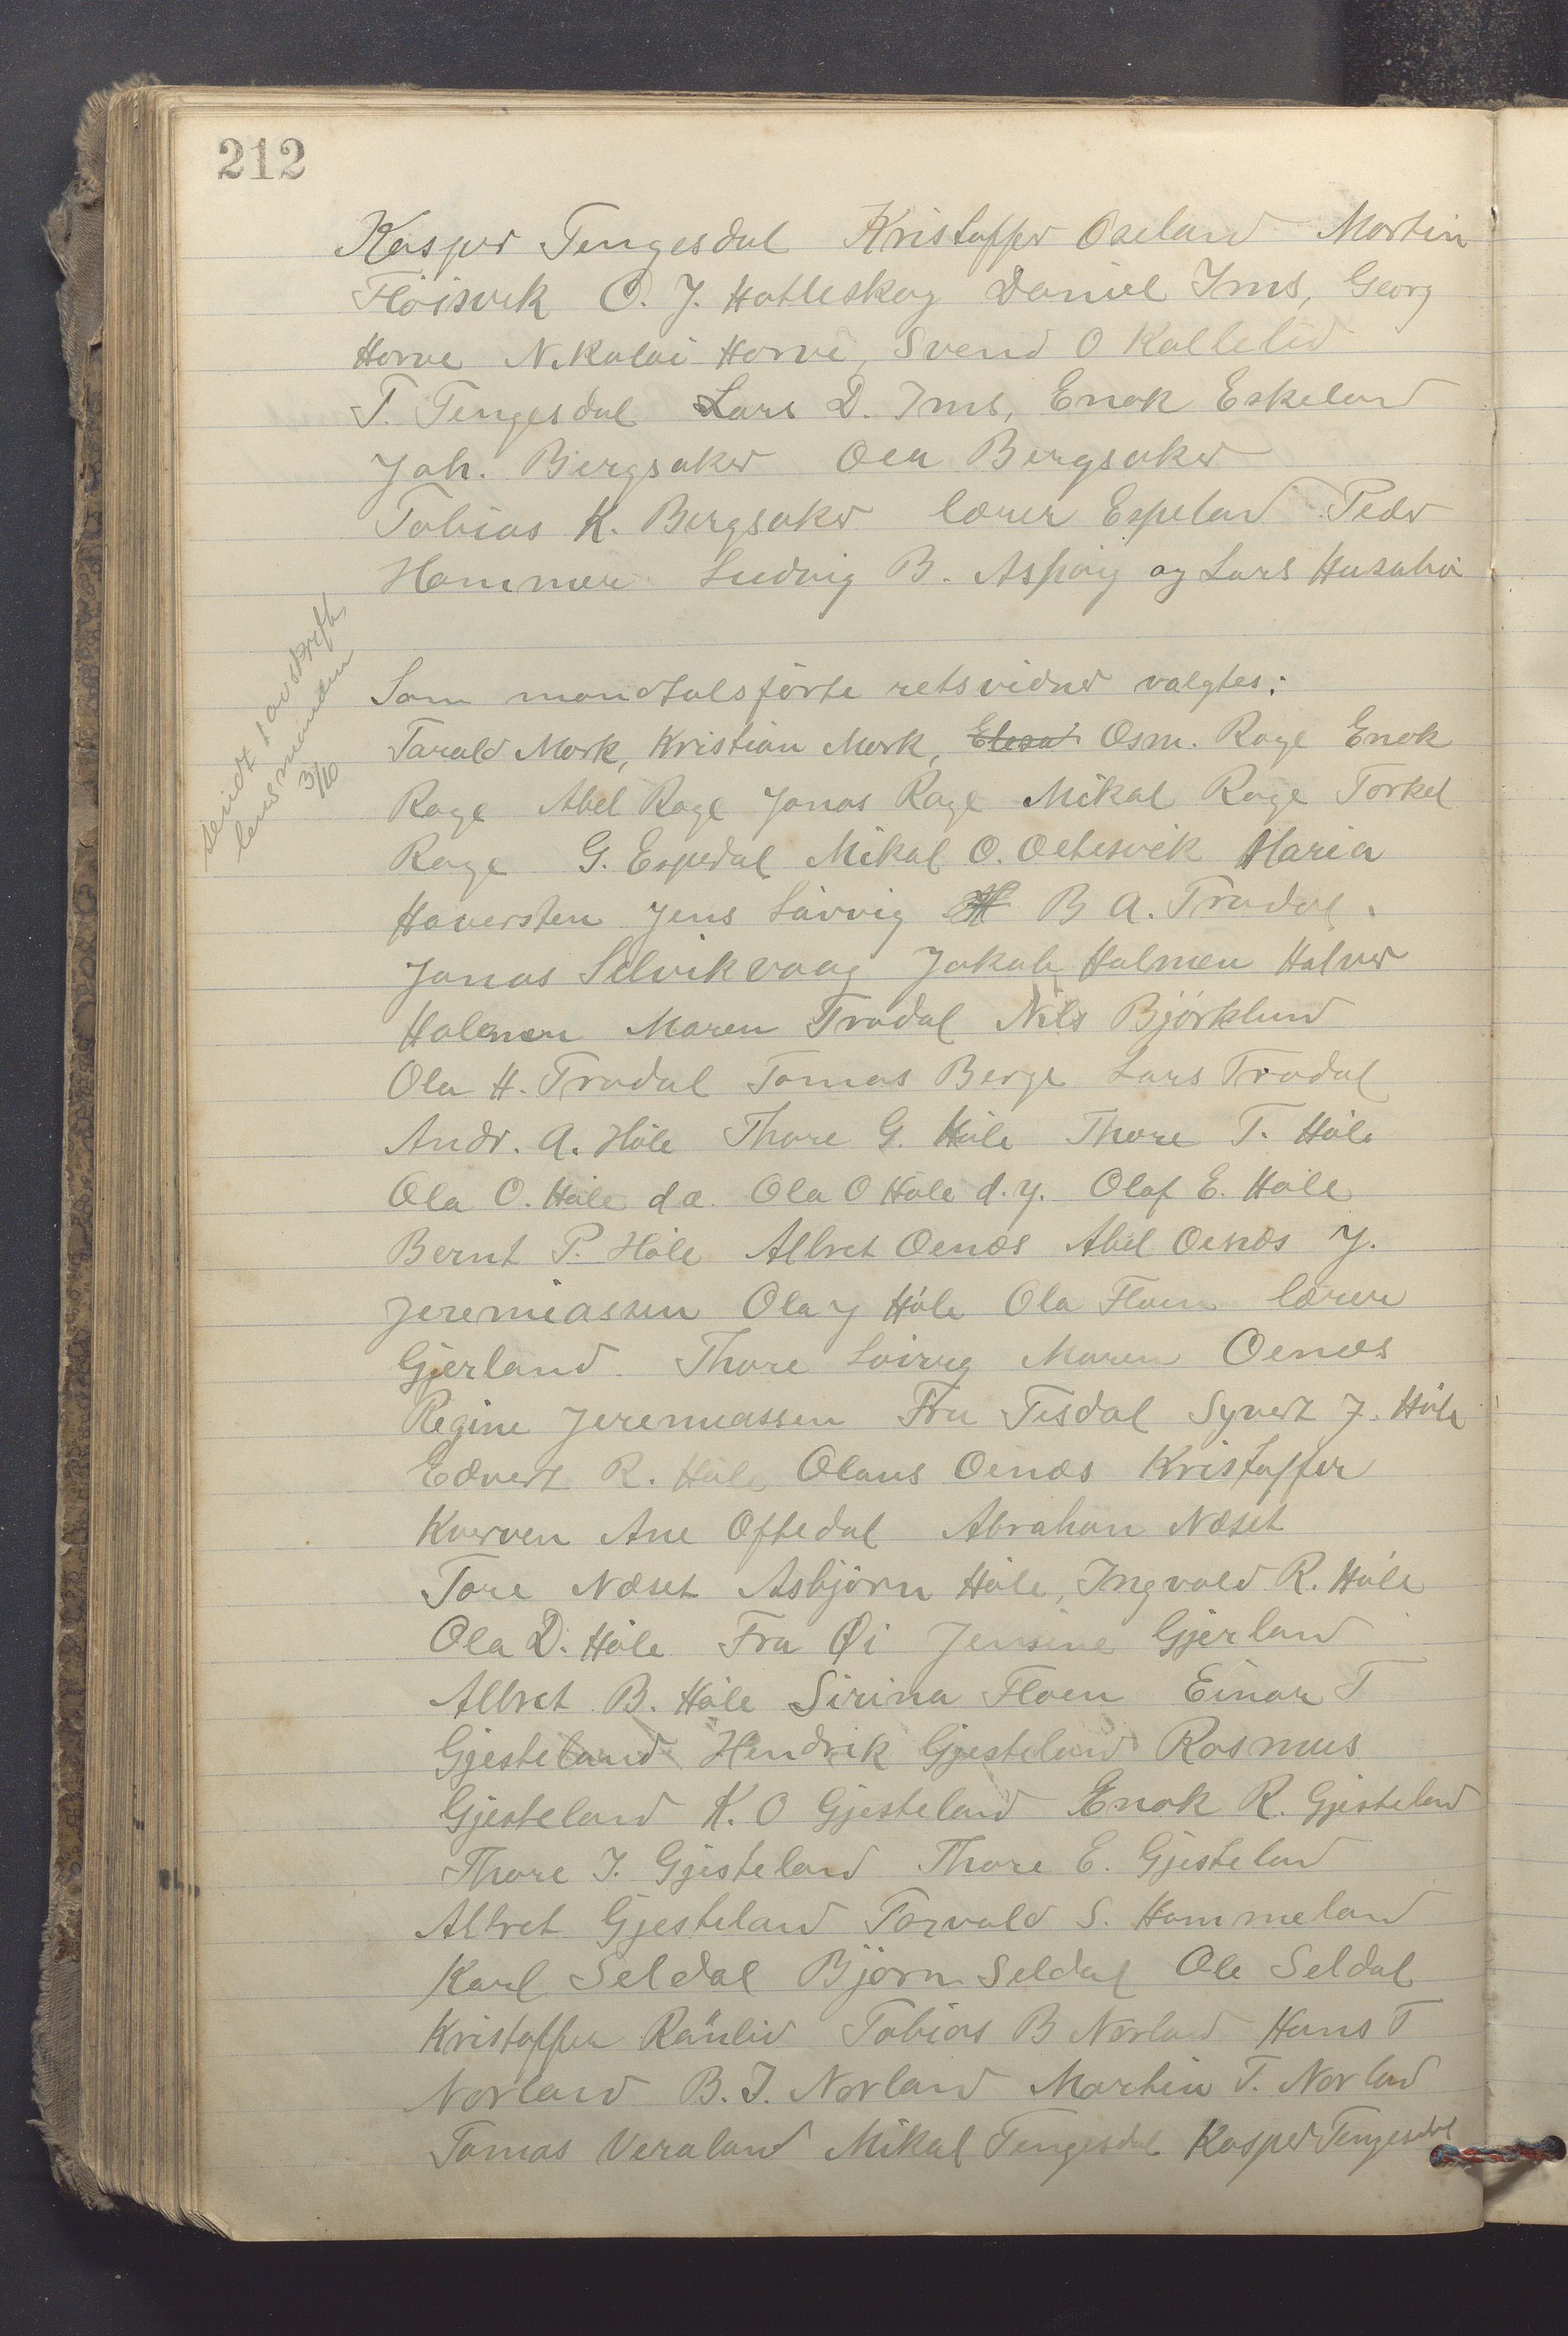 212
Kasper Tengesdal Kristoffer Oaeland Martin
Flöisvik O. J. Hatleskog Daniel Ims, Georg
Horve Nikolai Horve, Svend O Kallelid
T. Tengesdal Lars D. Ims, Enok Eskeland
Joh. Bergsaker Ola Bergsaker
Tobias K. Bergsaker lærer Espeland Peder
Hammer Ludvig B. Aspöy og Lars Husabö
Som mandtalsförte retsvidner valgtes:
Tarald Mork, Kristian Mork, Osm. Rage Enok
Rage Abel Rage Jonas Rage Mikal Rage Torkel
Rage G. Espedal Mikal O. Oltesvik Maria
Haversten Jens Lövvig B A. Trodal.
Jonas Selvikvaag Jakob Holmen Halver
Holmen Maren Trodal Nils Björklund
Ola H. Trodal Tomas Berge Lars Trodal
Andr. A. Höle Thore G. Höle Thore T. Höle
Ola O. Höle d.æ. Ola O Höle d.y. Olaf E. Höle
Bernt P. Höle Albret Oenæs Abel Oenæs J.
Jeremiassen Ola J Höle Ola Floen lærer
Gjerland. Thore Loivvg Maren Oenæs
Regine Jeremiassen Fru Tisdal Syvert J. Höle
Edvert R. Höle Olaus Oenæs Kristoffer
Kverven Ane Oftedal Abraham Næset
Tore Næset Asbjörn Höle, Ingvald R. Höle
Ola D. Höle Fra Øi Jensine Gjerland
Albret B. Höle Sirina Floen Einar T
Gjesteland Hendrik Gjesteland Rasmus
Gjesteland K. O Gjesteland Enok R. Gjesteland
Thore I. Gjesteland Thore E. Gjesteland
Albret Gjesteland Torvald S. Hommeland
Karl Seldal Björn Seldal Ole Seldal
Kristoffer Rånlid Tobias B Norland Hans T
Norland B. I. Norland Martin T. Norland
Tomas Veraland Mikal Tengesdal Kasper Tengesdal
sendt 1 avskrift
lensmanden
3/10